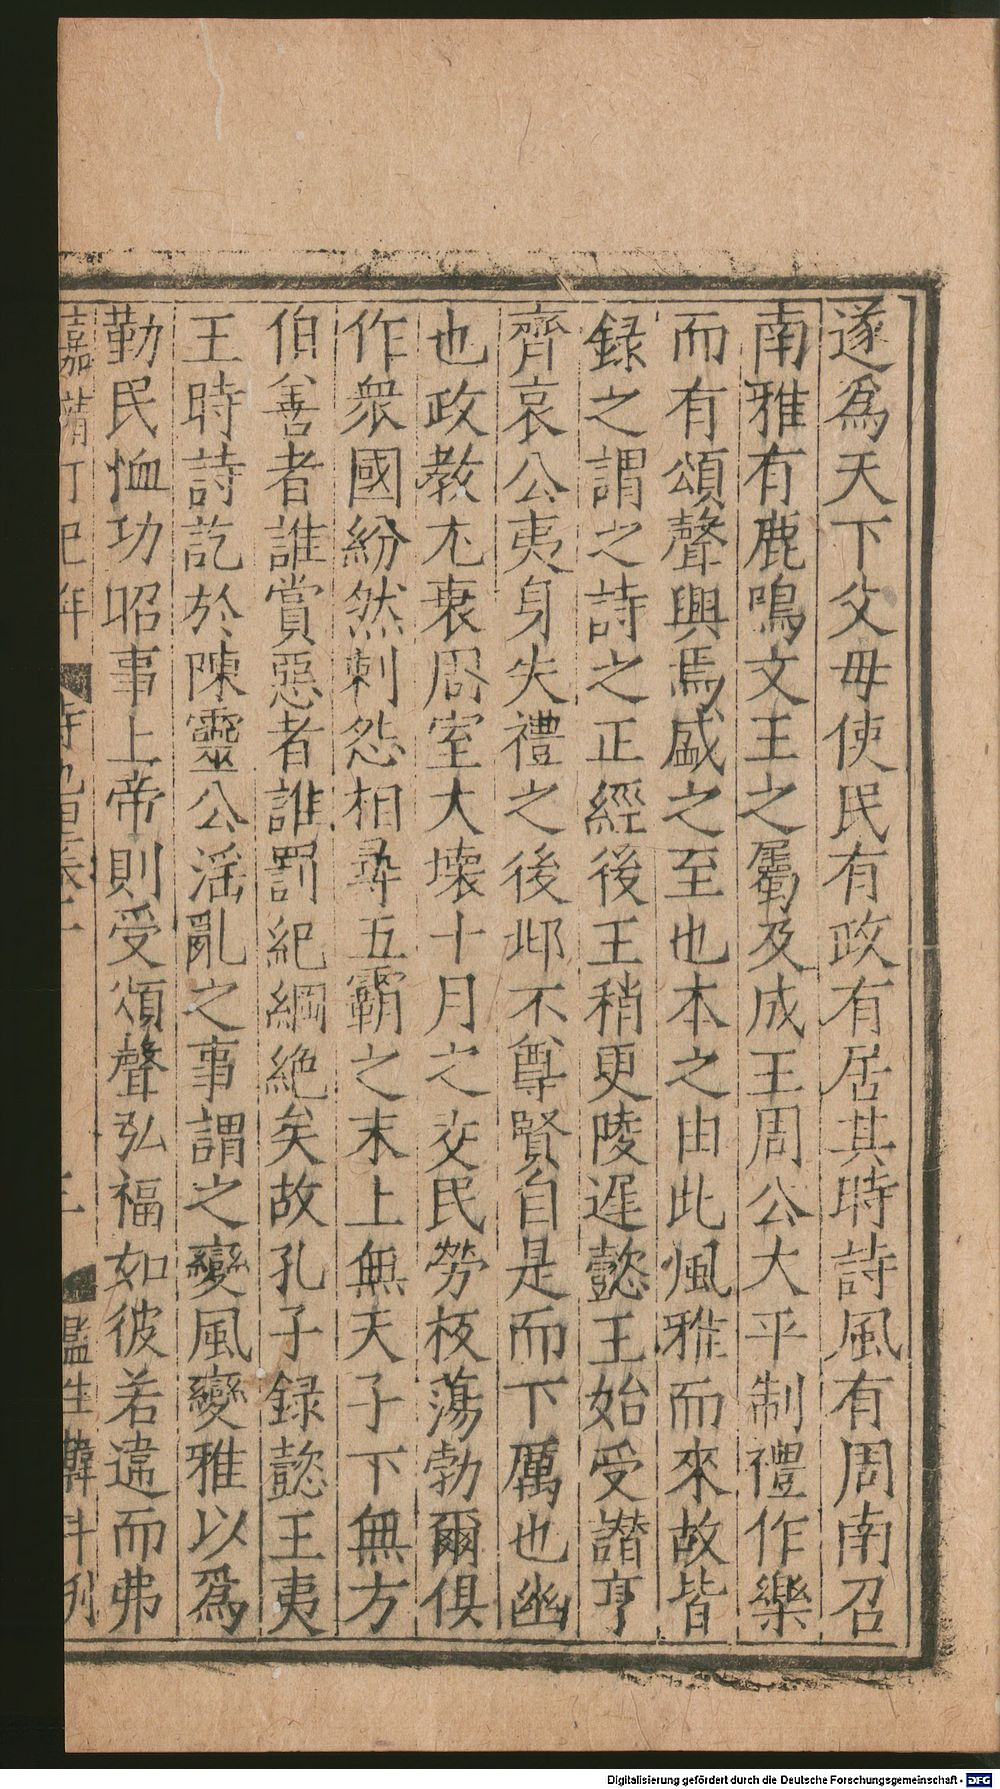 遂爲天下父母使民有政有居其時詩風有周南召
南雅有鹿鳴文王之屬及成王周公大平制禮作樂
而有頌聲興焉盛之至也本之由此風雅而來故皆
録之謂之詩之正經後王稍更陵遲懿王始受譖亨
齊哀公夷身失禮之後邶不尊賢自是而下厲也幽
也政教尤衰周室大壞十月之交民勞板蕩勃爾俱
作衆國紛然刺怨相尋五霸之末上無天子下無方
伯善者誰賞惡者誰罰紀綱絶矣故孔子録懿王夷
王時詩訖於陳靈公滛亂之事謂之變風變雅以爲
勤民恤功昭事上帝則受頌聲弘福如彼若違而弗
嘉靖丁巳年 監生韓科刊
Digitalisierung gefördert durch die Deutsche Forschungsgemeinschaft - DFG